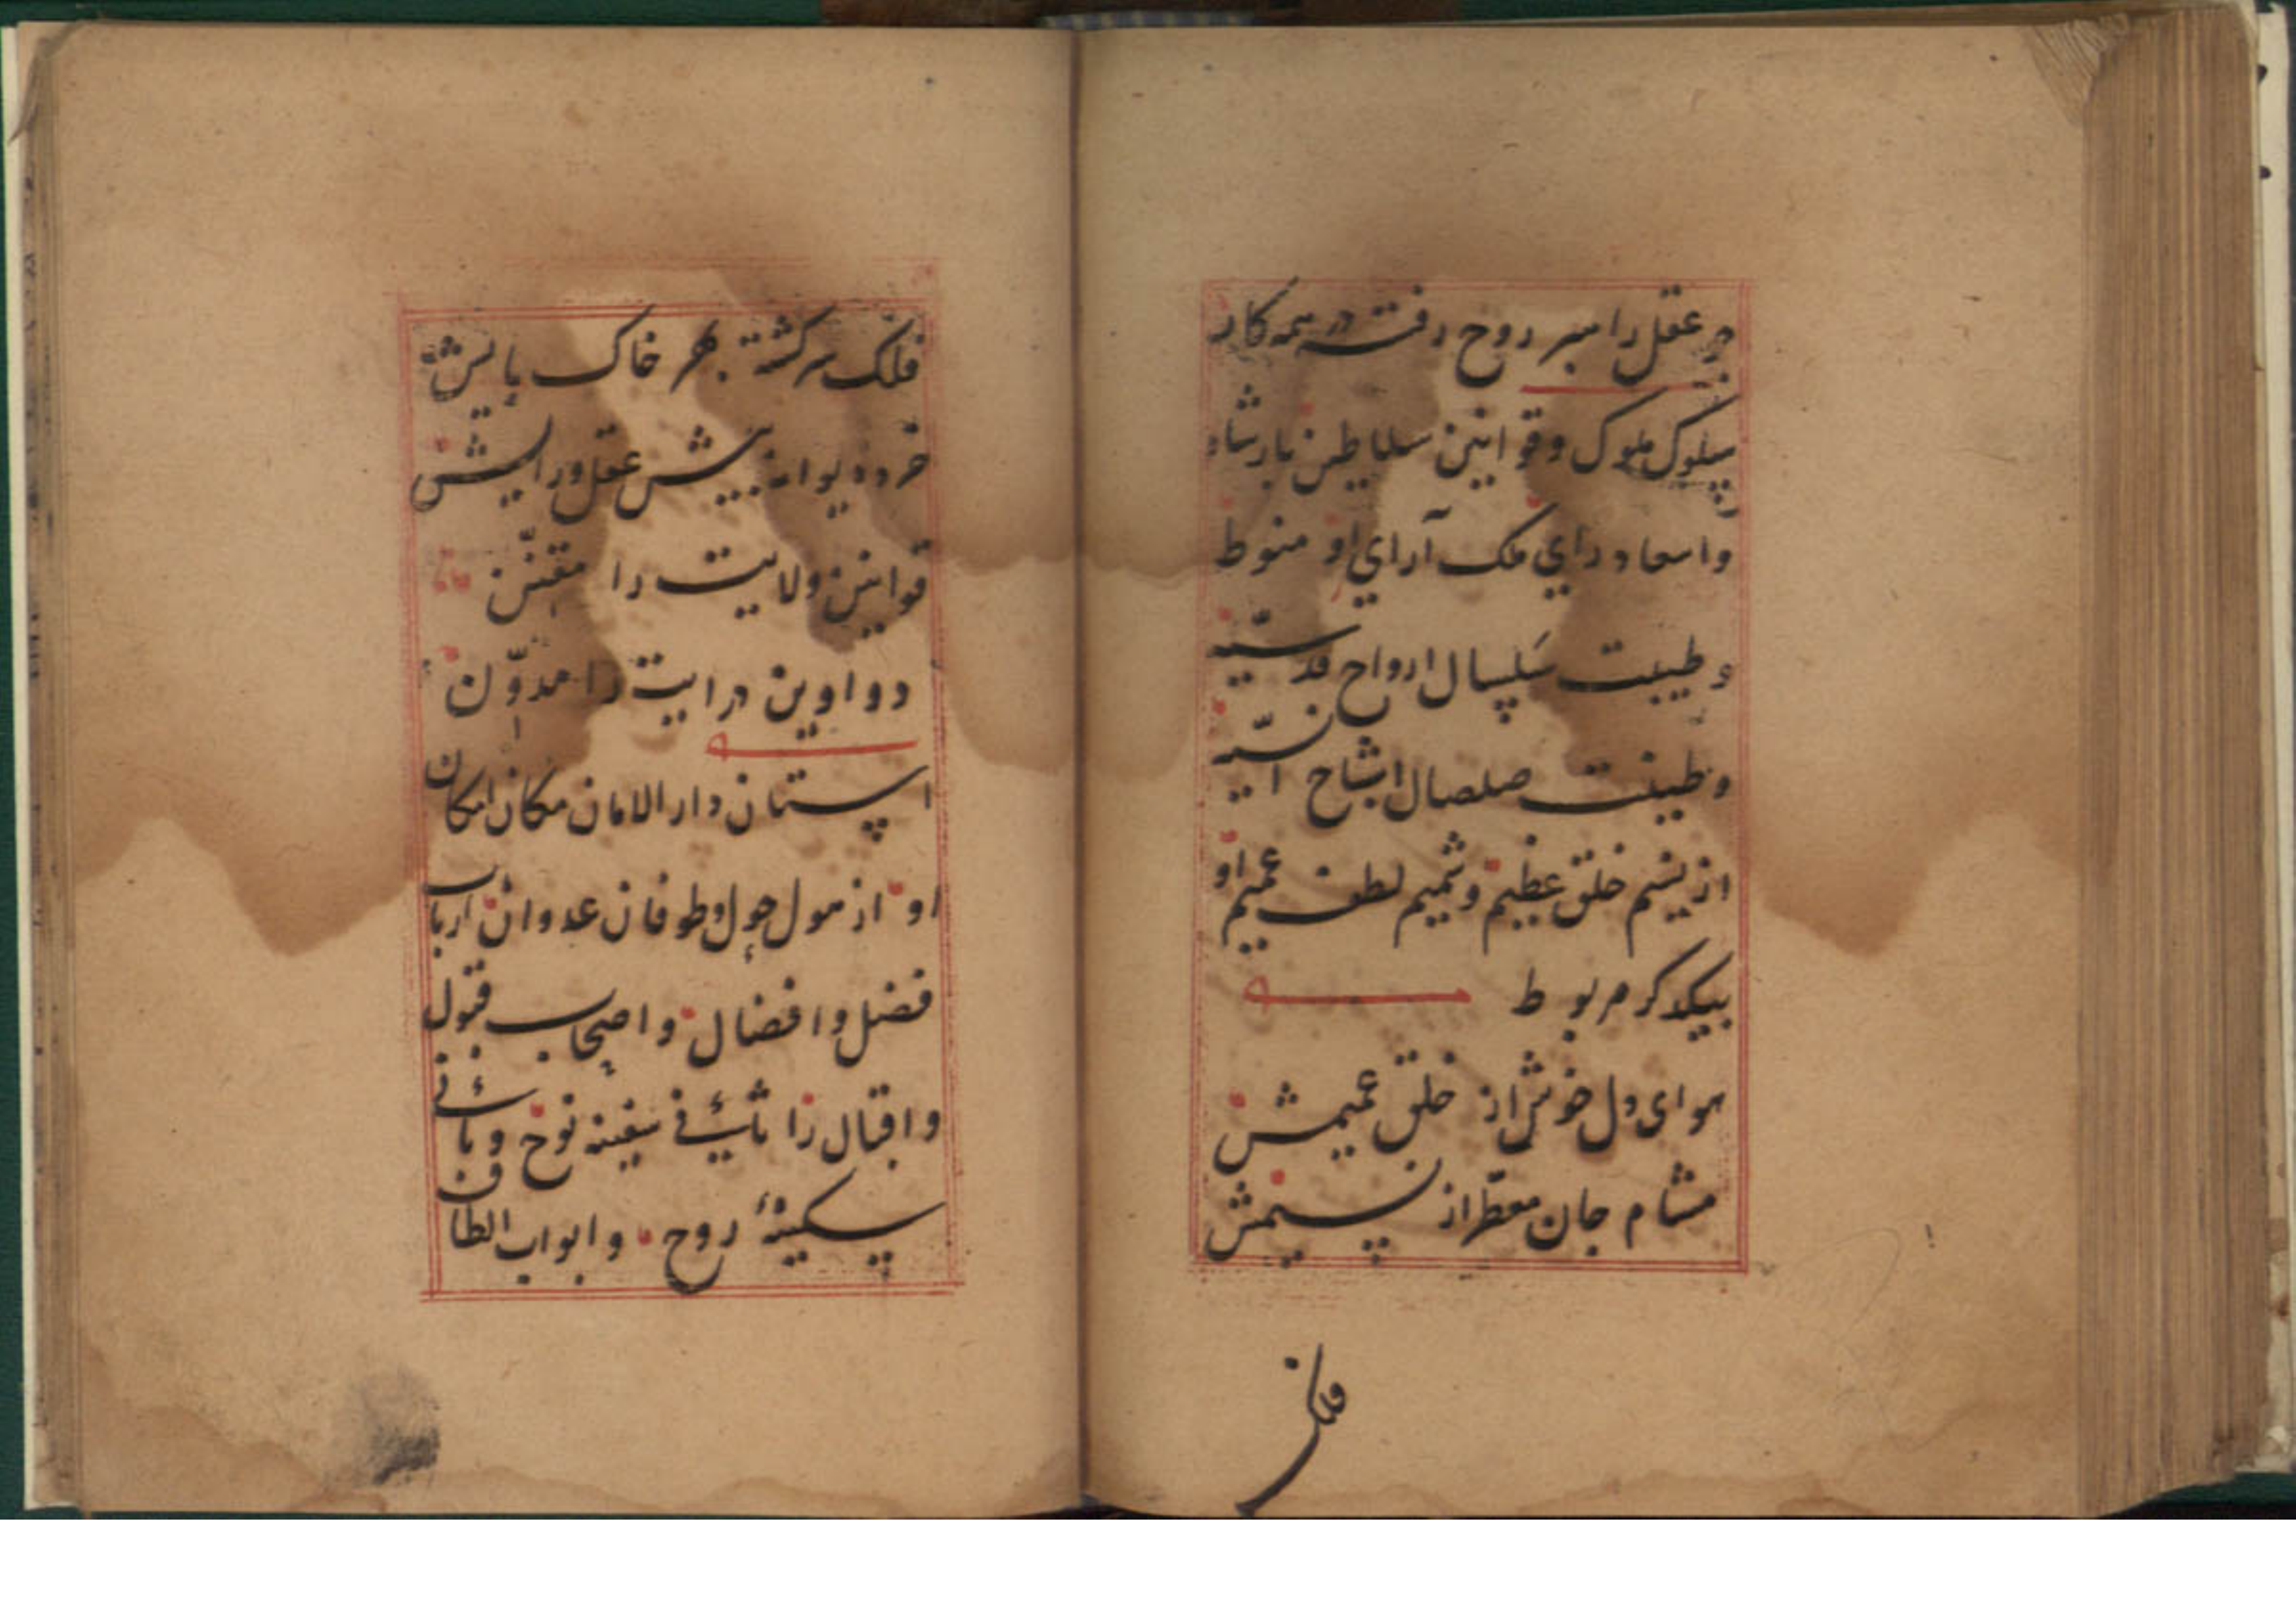 بر عقل را مبر روح رفته در همه کار
سلوک ملوک و قوانین سلاطین بارشاد
واسعاد رای ملک آرای او منوط
وطیبت سلسال ارواح قدسیّه
وطینت صلصال اشباح انسیّه
از نسیم خلق عظیم و شمیم لطف عمیم او
بیکدکر مربوط
هوای دل خوش از خلق عمیمش
مشام جان معطّر از نسیمش
فلک
فلک سرکشته بهر خاک پایش
خرد دیوانه پیش عقل و رایش
قوانین ولایت را مقنّن
دواوین درایت را مدوّن
استان دار الامان مکان امکان
او از هول حول وطوفان عدوان ارباب
فضل وافضال واصحاب قبول
واقبال را ثانی سفینه نوح وبانی
سکینهٔ روح وابواب الطاف